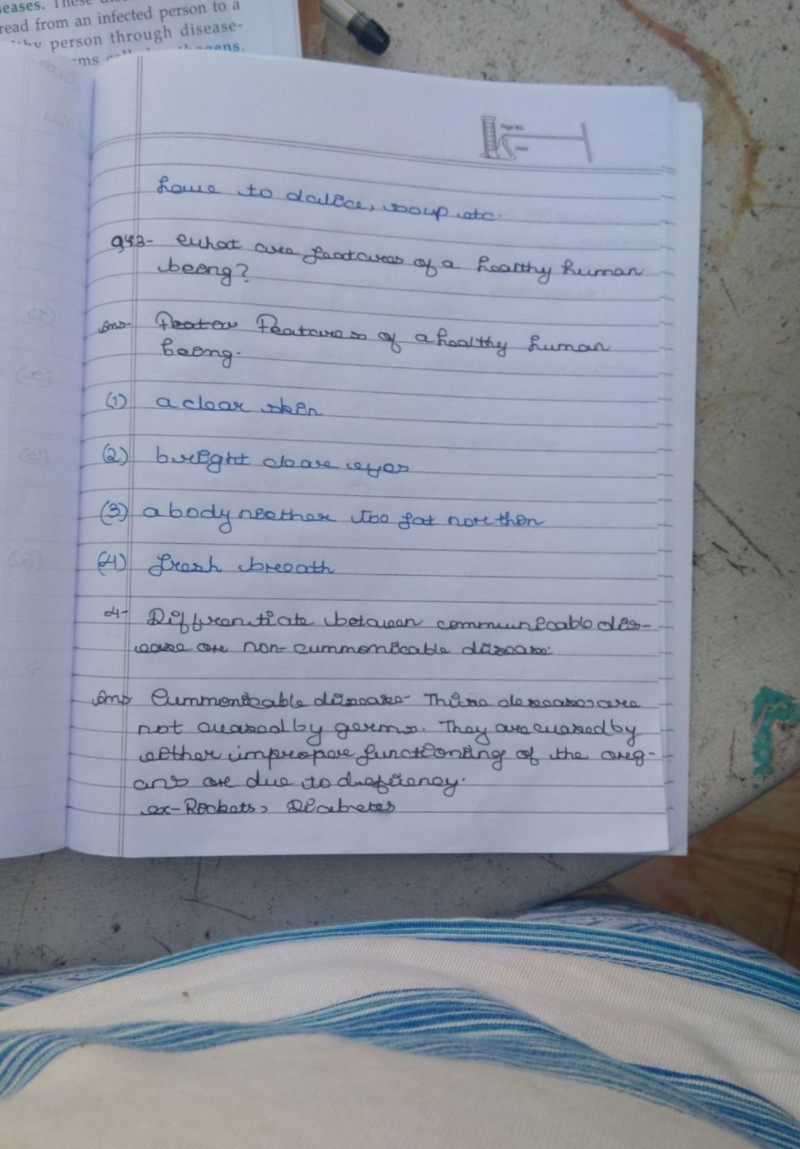 eases. These
read from an infected person to a
thy person through disease-
ms called pathogens.
Page No.
Date
have to dalice, soup etc.
Q43- What are featcures of a healthy human
being?
Ans- Featur Features of a healthy human
being.
(1) a clear skin
(2) bright cleare eyes
(3) a body neither too fat nor thin
(4) fresh breath
4- Diffrentiate between communicable dis-
ease or non-cummonicable disease.
Ans Cummonicable disease- These deseases are
not cuased by germs. They are cuased by
either impropore functioning of the org-
ans or due to dificiency.
ex- Rickets, Diabetes